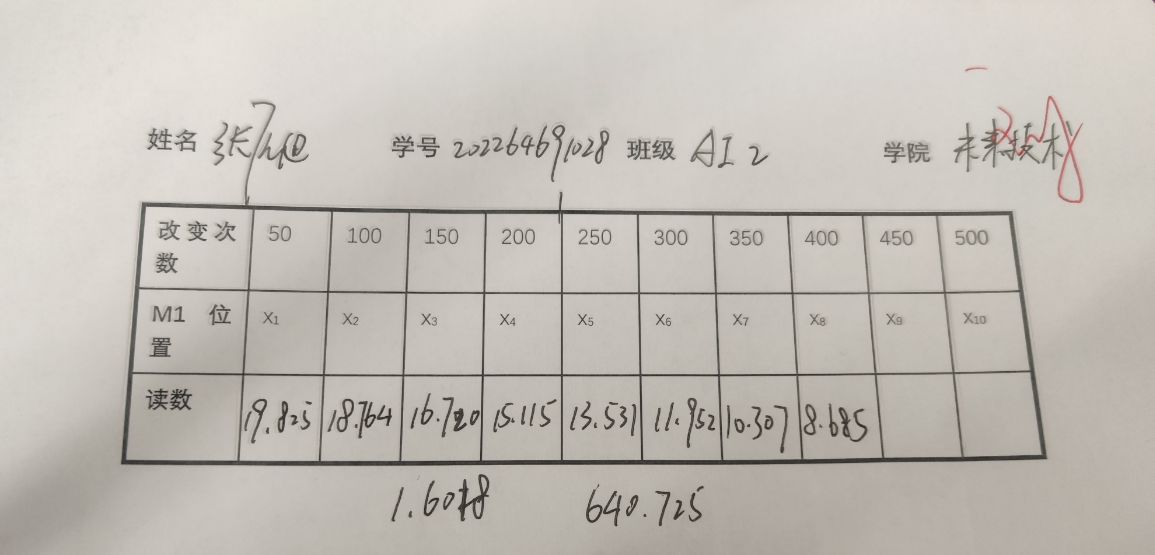 姓名 张 学号 202264691028 班级 AI 2 学院 未来技术
改变次数 50 100 150 200 250 300 350 400 450 500
M1 位置 X1 X2 X3 X4 X5 X6 X7 X8 X9 X10
读数 19.825 18.764 16.720 15.115 13.531 11.952 10.307 8.685
640.725